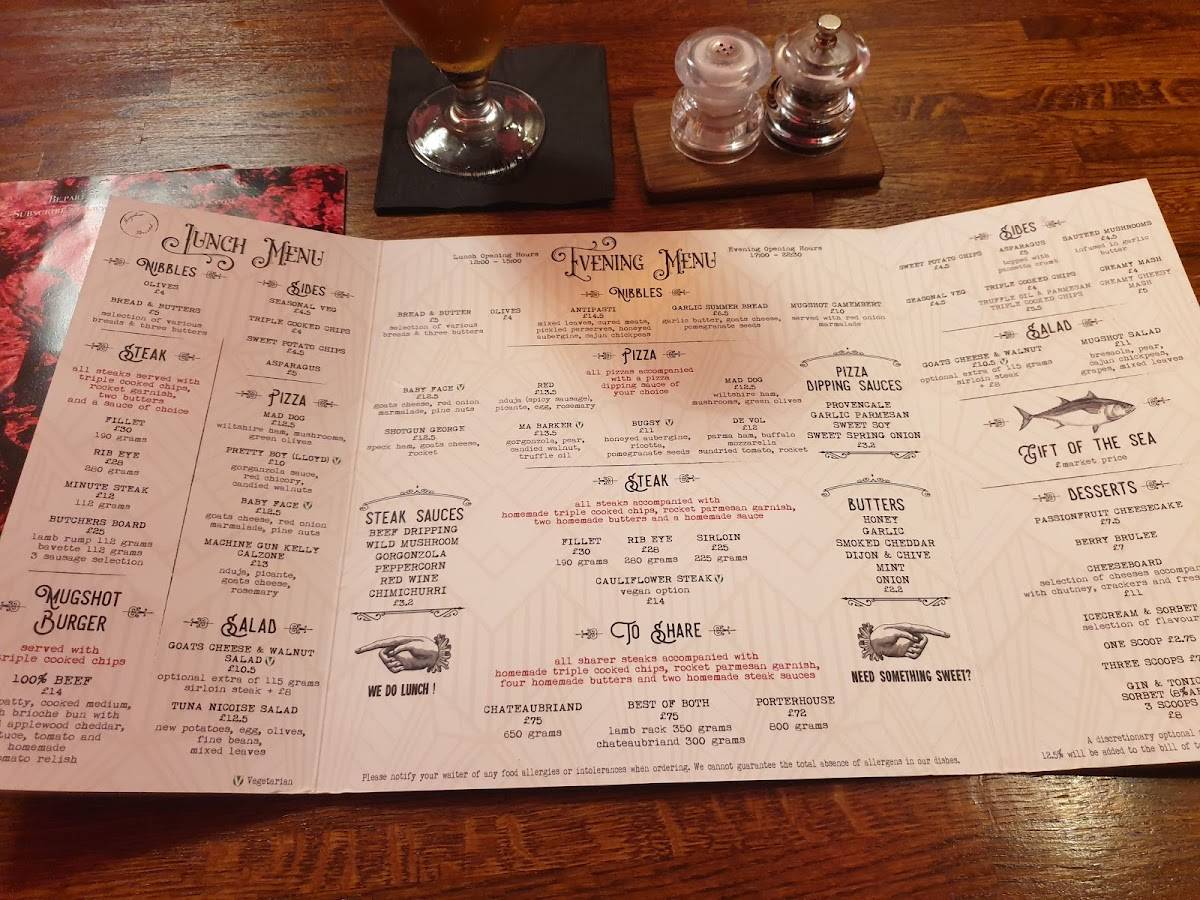 BE PART
SUBSCRIBE
LUNCH MENU
NIBBLES
OLIVES
£4
BREAD & BUTTERS
£5
selection of various
breads & three butters
STEAK
all steaks served with
triple cooked chips,
rocket garnish,
two butters
and a sauce of choice
FILLET
£30
190 grams
RIB EYE
£28
280 grams
MINUTE STEAK
£12
112 grams
BUTCHERS BOARD
£25
lamb rump 112 grams
bavette 112 grams
3 sausage selection
MUGSHOT
BURGER
served with
triple cooked chips
100% BEEF
£14
patty, cooked medium,
brioche bun with
applewood cheddar,
tomato and
homemade
relish
SIDES
SEASONAL VEG
£4.5
TRIPLE COOKED CHIPS
£4
SWEET POTATO CHIPS
£4.5
ASPARAGUS
£5
PIZZA
MAD DOG
£12.5
wiltshire ham, mushrooms,
green olives
PRETTY BOY (LLOYD) V
£10
gorgonzola sauce,
red chicory,
candied walnuts
BABY FACE V
£12.5
goats cheese, red onion
marmalade, pine nuts
MACHINE GUN KELLY
CALZONE
£13.5
nduja, picante,
goats cheese,
rosemary
SALAD
GOATS CHEESE & WALNUT
SALAD V
£10.5
optional extra of 115 grams
sirloin steak + £8
TUNA NICOISE SALAD
£12.5
new potatoes, egg, olives,
fine beans,
mixed leaves
V Vegetarian
Lunch Opening Hours
12:00 - 15:00
EVENING MENU
Evening Opening Hours
17:00 - 22:30
NIBBLES
BREAD & BUTTER
£5
selection of various
breads & three butters
OLIVES
£4
ANTIPASTI
£14.5
mixed leaves, cured meats,
pickled perserves, honeyed
aubergine, cajun chickpeas
GARLIC SUMMER BREAD
£6.5
garlic butter, goats cheese,
pomegranate seeds
MUGSHOT CAMEMBERT
£10
served with red onion
marmalade
PIZZA
all pizzas accompanied
with a pizza
dipping sauce of
your choice
BABY FACE V
£12.5
goats cheese, red onion
marmalade, pine nuts
RED
£13.5
nduja (spicy sausage),
picante, egg, rosemary
MAD DOG
£12.5
wiltshire ham,
mushrooms, green olives
SHOTGUN GEORGE
£12.5
speck ham, goats cheese,
rocket
MA BARKER V
£13.5
gorgonzola, pear,
candied walnut,
truffle oil
BUGSY V
£11
honeyed aubergine,
ricotta,
pomegranate seeds
DE VOL
£12
parma ham, buffalo
mozzarella
sundried tomato, rocket
PIZZA
DIPPING SAUCES
PROVENCALE
GARLIC PARMESAN
SWEET SOY
SWEET SPRING ONION
£3.2
STEAK
all steaks accompanied with
homemade triple cooked chips, rocket parmesan garnish,
two homemade butters and a homemade sauce
FILLET
£30
190 grams
RIB EYE
£28
280 grams
SIRLOIN
£25
225 grams
CAULIFLOWER STEAK V
vegan option
£14
STEAK SAUCES
BEEF DRIPPING
WILD MUSHROOM
GORGONZOLA
PEPPERCORN
RED WINE
CHIMICHURRI
£3.2
BUTTERS
HONEY
GARLIC
SMOKED CHEDDAR
DIJON & CHIVE
MINT
ONION
£2.2
WE DO LUNCH !
TO SHARE
all sharer steaks accompanied with
homemade triple cooked chips, rocket parmesan garnish,
four homemade butters and two homemade steak sauces
CHATEAUBRIAND
£75
650 grams
BEST OF BOTH
£75
lamb rack 350 grams
chateaubriand 300 grams
PORTERHOUSE
£72
800 grams
NEED SOMETHING SWEET?
Please notify your waiter of any food allergies or intolerances when ordering. We cannot guarantee the total absence of allergens in our dishes.
SIDES
SWEET POTATO CHIPS
£4.5
ASPARAGUS
£5
topped with
pancetta crumb
SAUTEED MUSHROOMS
£4.5
infused in garlic
butter
SEASONAL VEG
£4.5
TRIPLE COOKED CHIPS
£4
TRUFFLE OIL & PARMESAN
TRIPLE COOKED CHIPS
£5
CREAMY MASH
£4
CREAMY CHEESY
MASH
£5
SALAD
GOATS CHEESE & WALNUT
£10.5 V
optional extra of 115 grams
sirloin steak
+ £8
MUGSHOT SALAD
£11
bresaola, pear,
cajun chickpeas,
grapes, mixed leaves
GIFT OF THE SEA
£market price
DESSERTS
PASSIONFRUIT CHEESECAKE
£7.5
BERRY BRULEE
£7
CHEESEBOARD
selection of cheeses
with chutney, crackers and
£11
ICECREAM & SORBET
selection of
ONE SCOOP £2.75
THREE SCOOPS
GIN & TONIC
SORBET
3 SCOOPS
£8
A discretionary optional
12.5% will be added to the bill of